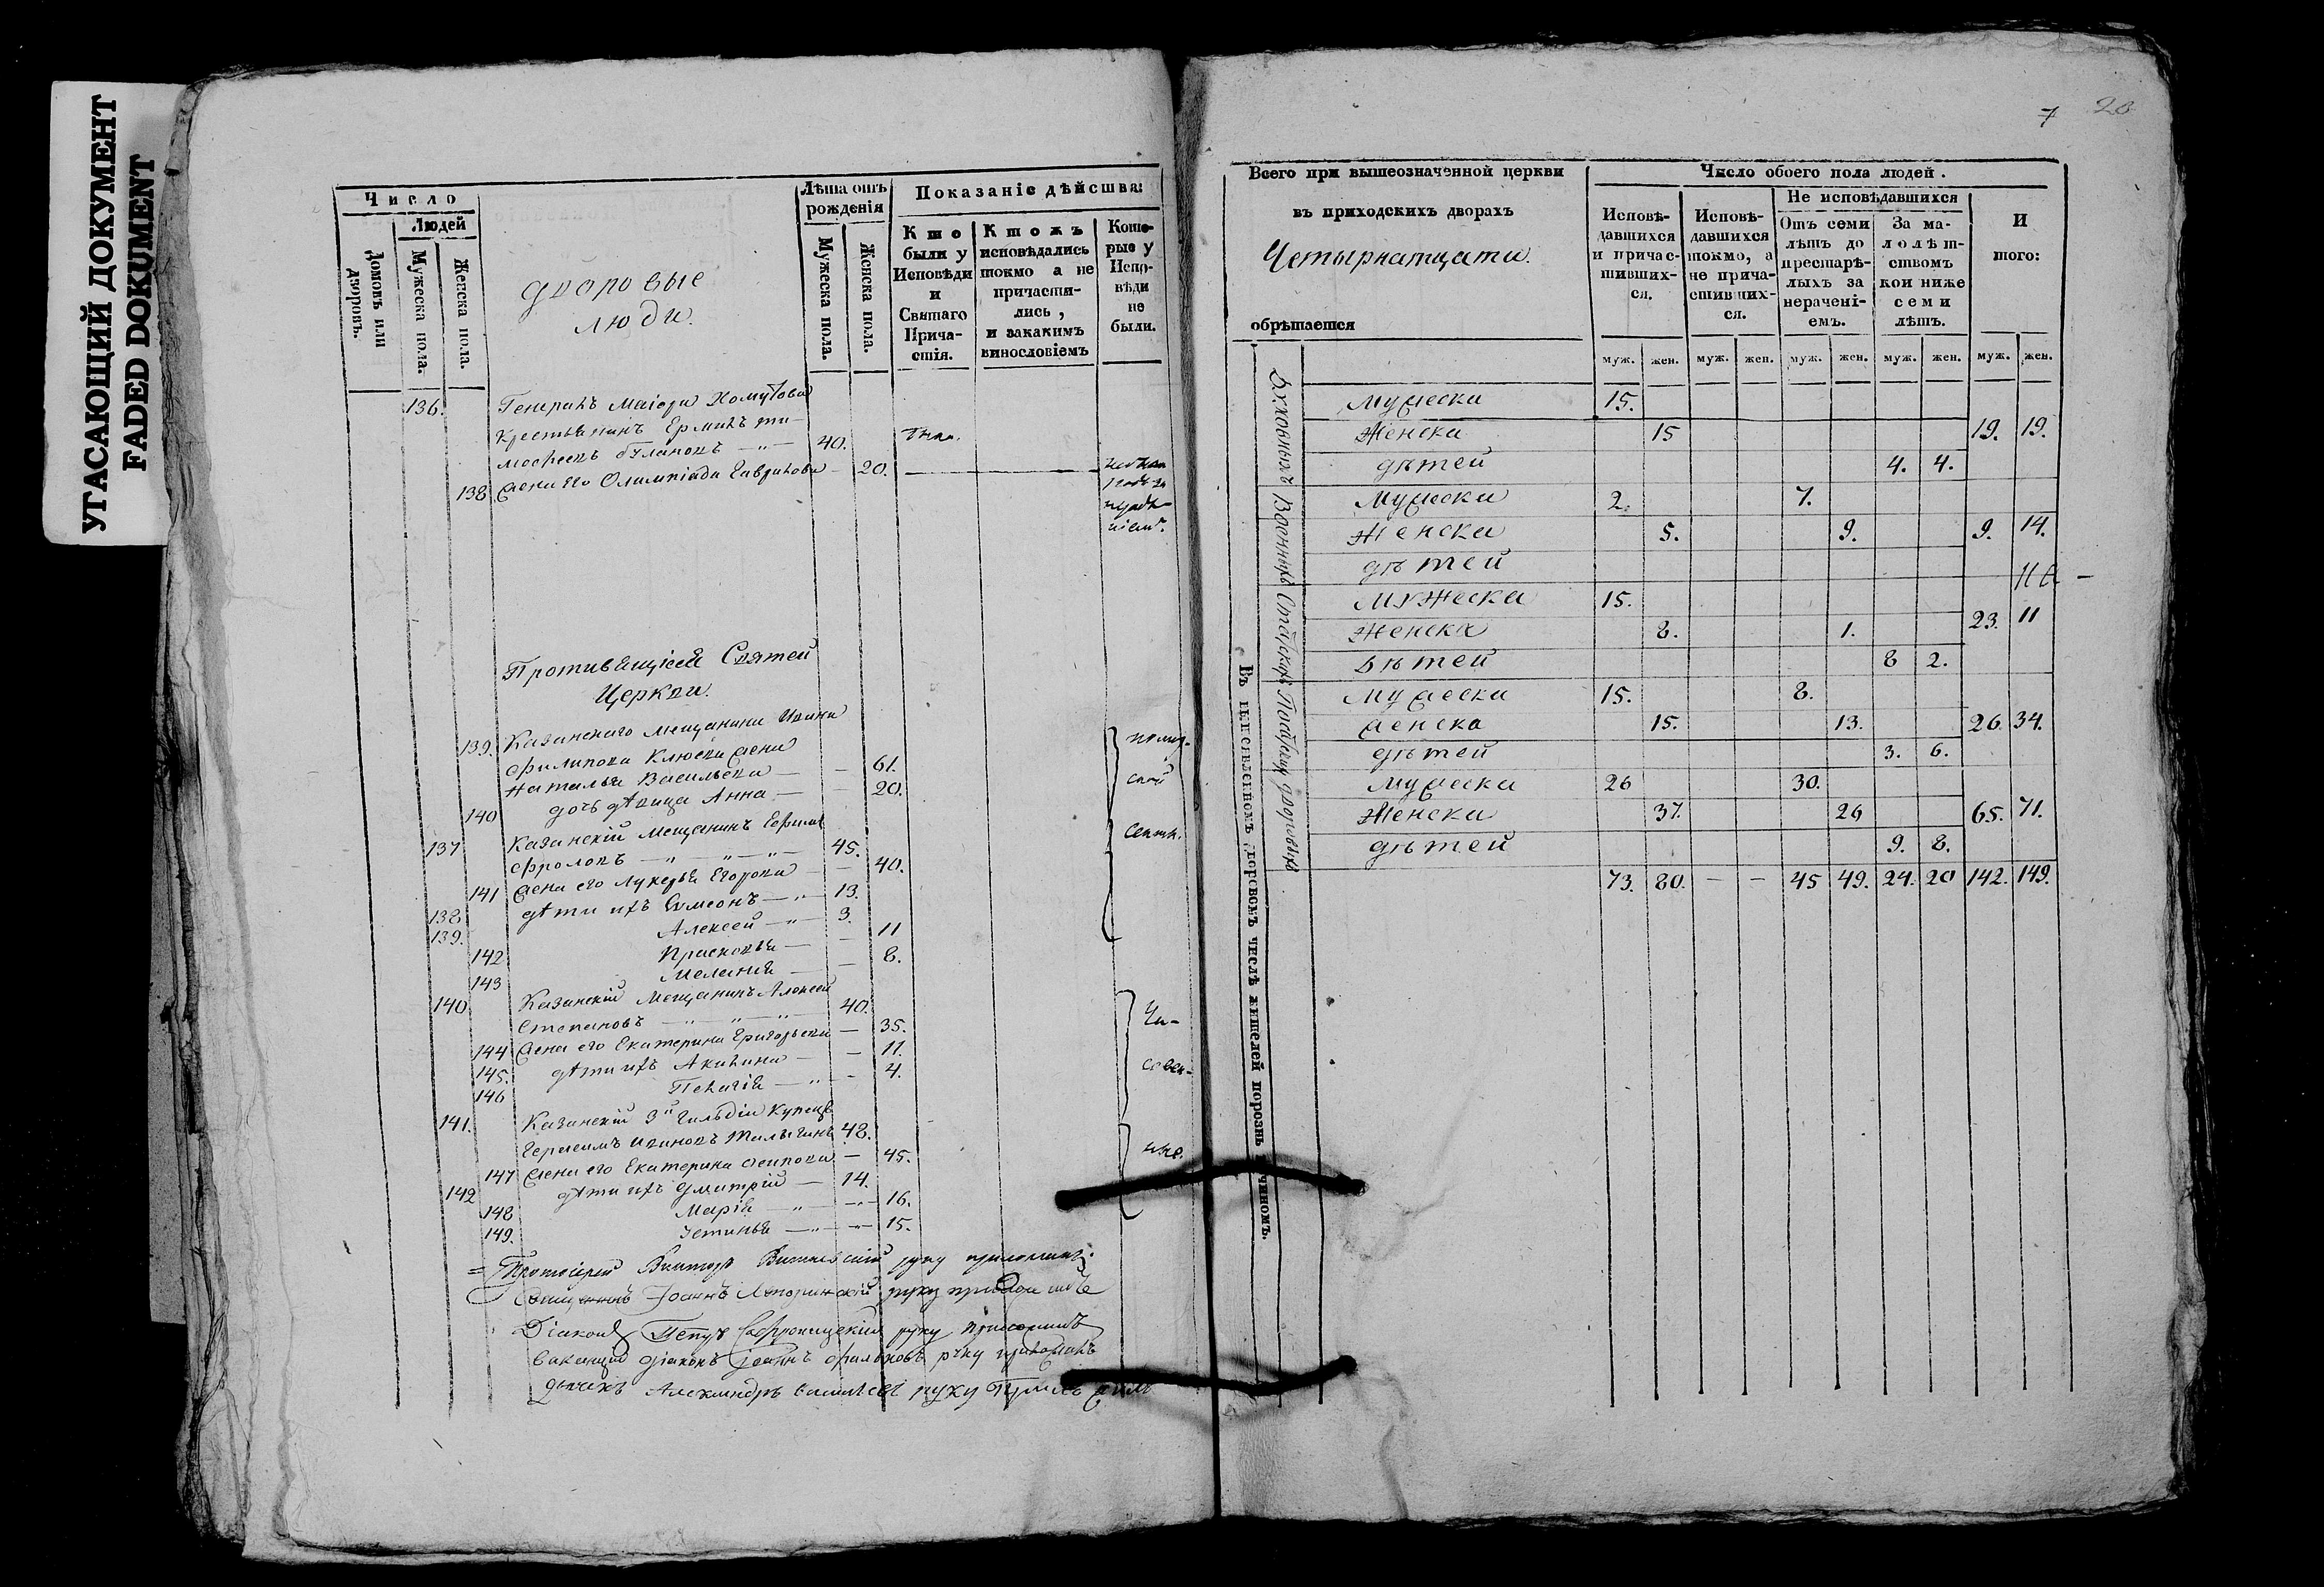 УГАСАЮЩИЙ ДОКУМЕНТ
FADED DOKUMENT
Число
Людей
Домовъ или дворовъ.
Мужеска пола.
Женска пола.
дворовые
люди.
Лѣта отъ рожденія
Мужеска пола.
Женска пола.
Показаніе дѣйства:
Кто были у Исповѣди и Святаго Причастія.
Ктожъ исповѣдались токмо а не причастились, и закакимъ винословіемъ
Которые у Исповѣди не были.
136. Генералъ Маіора Хомутова
крестьянинъ Ермилъ Ти-
мофеевъ 40.
138 Жена его Олимпіада Гаврилова 20.
Противящіеся Святей
Церкви.
139. Казанскаго мещанина Ивана
Филипова Клюева жена
Наталья Васильева 61.
140 дочь дѣвица Анна 20.
137 Казанскій Мещанинъ Ефимъ
Фроловъ 45.
141 Жена его Лукерья Егорова 40.
138 дѣти ихъ Симеонъ 13.
139. Алексей 3.
142 Прасковья 11
143 Меланія 8.
140 Казанскій Мещанинъ Алексей
Степановъ 40.
144 Жена его Екатерина Григорьева 35.
145. дѣти ихъ Акилина 11.
146 Пелагія 4.
141. Казанскій 3й Гильдіи Купецъ
Герасимъ Ивановъ 48.
147 Жена его Екатерина Осипова 45.
142 дѣти ихъ Дмитрій 14.
148 Марія 16.
149. Устинья 15.
Протоіерей Викторъ руку приложилъ.
Священникъ Іоаннъ руку приложилъ
Діаконъ Петръ руку приложилъ
діаконъ Іоаннъ руку приложилъ
дьячекъ Александръ руку приложилъ
7 20
Всего при вышеозначенной церкви
въ приходскихъ дворахъ
Четырнатцати.
обрѣтается
Число обоего пола людей.
Исповѣдавшихся и причастившихся.
Исповѣдавшихся токмо, а не причастившихся.
Не исповѣдавшихся
Отъ семи лѣтъ до престарѣлыхъ за нераченіемъ.
За малолѣтствомъ кои ниже семи лѣтъ.
И того:
муж. жен. муж. жен. муж. жен. муж. жен. муж. жен.
Въ вышеписанномъ дворовомъ числѣ жителей порознь чиномъ.
Духовныхъ
Мужеска 15.
Женска 15 19. 19.
дѣтей 4. 4.
Военныхъ
Мужеска 2. 7.
Женска 5. 9. 9. 14.
дѣтей
Статскихъ
Мужеска 15.
Женска 8. 1. 23. 11
Дѣтей 8 2.
Посадскихъ
Мужеска 15. 8.
женска 15. 13. 26. 34.
дѣтей 3. 6.
дворовыхъ
Мужеска 26 30.
Женска 37. 26 65. 71.
дѣтей 9. 8.
73. 80. — — 45 49. 24. 20 142. 149.